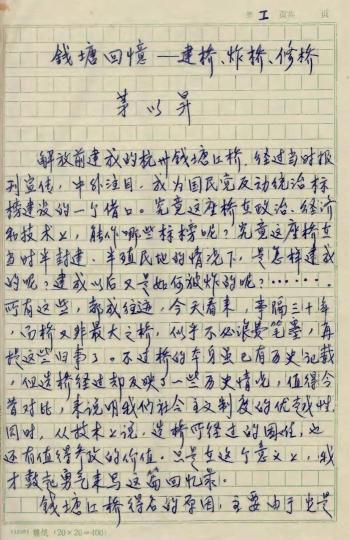 第 1 页共 页
钱塘回憶——建桥、炸桥、修桥
茅以昇
解放前建成的杭州钱塘江桥，经过当时报
刊宣传，中外注目，成为国民党反动统治标
榜建设的一个借口。究竟这座桥在政治、经济
和技术上，能作哪些标榜呢？究竟这座桥在
当时半封建、半殖民地的情况下，是怎样建成
的呢？建成以后又是如何被炸的呢？……
所有这些，都成往迹，今天看来，事隔三十年
，而桥又非最大之桥，似乎不必浪费笔墨，再
提这些旧事了。不过桥的本身虽已有历史记载
，但造桥经过却反映了一些历史情况，值得今
昔对比，来说明我们社会主义制度的优越性。
同时，从技术上说，造桥所经过的困难，也
还有值得参考的价值。只是在这个意义上，我
才鼓起勇气来写这篇回忆录。
钱塘江桥得名的原因，主要由于它是
(20×20=400)